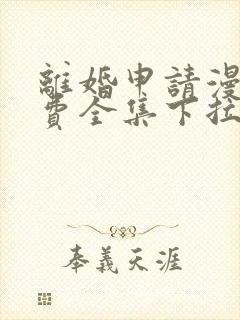 離婚申請漫
費全集下拉
奉義天涯